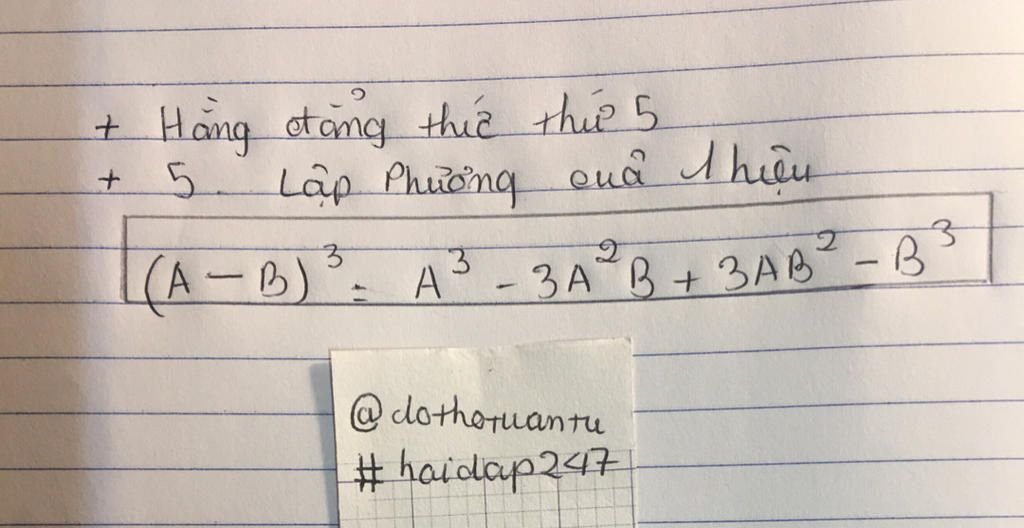 + Hằng đẳng thức thứ 5
+ 5. Lập Phương của 1 hiệu
(A - B)³ = A³ - 3A²B + 3AB² - B³
@dothotuantu
#haidap247